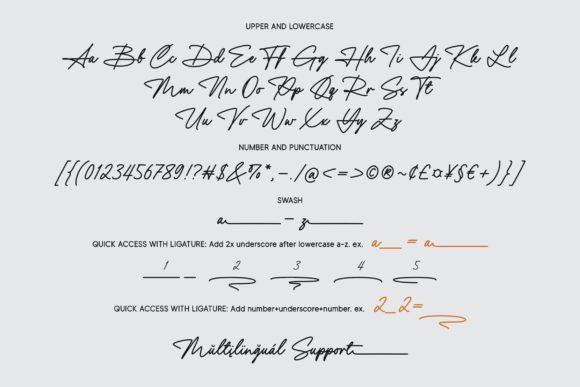 UPPER AND LOWERCASE
Aa Bb Cc Dd Ee Ff Gg Hh Ii Jj Kk Ll
Mm Nn Oo Pp Qq Rr Ss Tt
Uu Vv Ww Xx Yy Zz
NUMBER AND PUNCTUATION
[{(0123456789!?#$&%*,-./@<=>©®~¢£¤¥§€+)}]
SWASH
a__ – z__
QUICK ACCESS WITH LIGATURE: Add 2x underscore after lowercase a-z. ex. a__ = a__
1 – 2 3 4 5
QUICK ACCESS WITH LIGATURE: Add number+underscore+number. ex. 2_2=
Mŭltįlinğuál Support